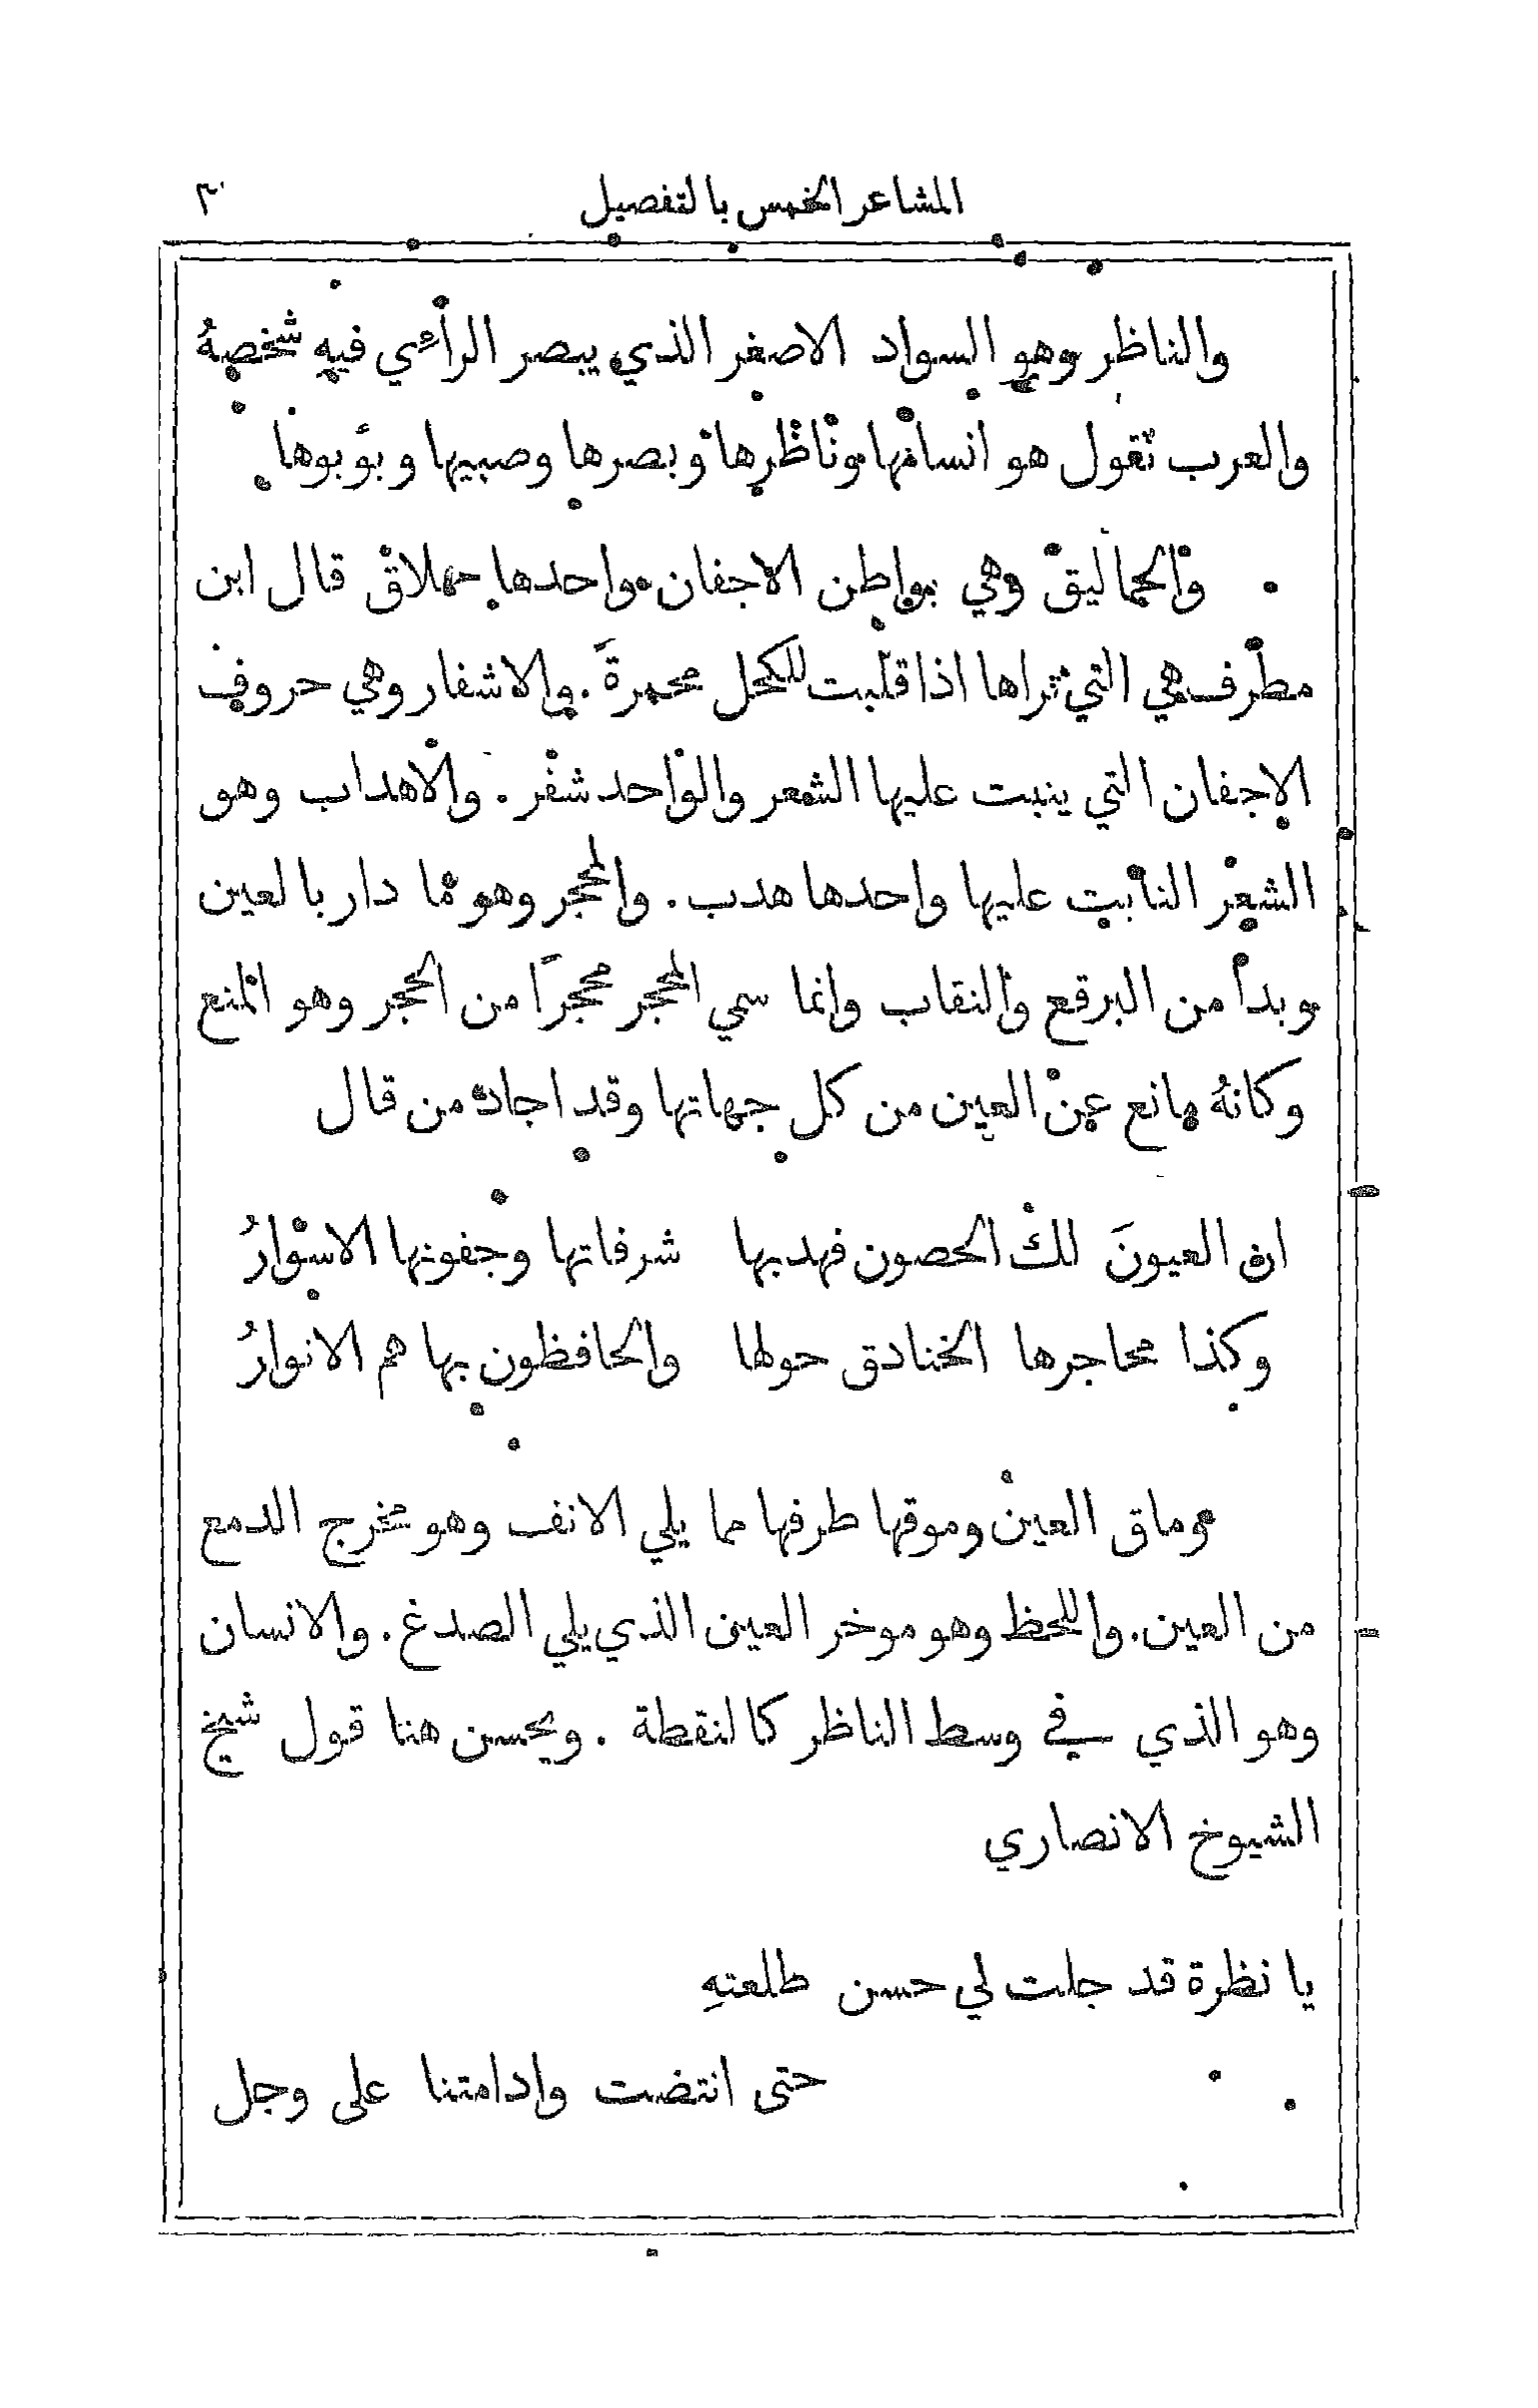 المشاعر الخمس بالتفصيل
٣
والناظر وهو السواد الاصغر الذي يبصر الرأي فيهِ شخصهُ
والعرب تقول هو انسانها وناظرها وبصرها وصبيها وبؤبوها
والحماليق وهي بواطن الاجفان واحدها حملاق قال ابن
مطرف هي التي تراها اذا قلبت للكحل محمرةً. والاشفار وهي حروف
الاجفان التي ينبت عليها الشعر والواحد شفر. والاهداب وهو
الشعر النابت عليها واحدها هدب. والمحجر وهو ما دار بالعين
وبدأ من البرقع والنقاب وانما سمي المحجر محجرًا من الحجر وهو المنع
وكانهُ مانع عن العين من كل جهاتها وقد اجاد من قال
ان العيونَ لك الحصون فهدبها شرفاتها وجفونها الاسوارُ
وكذا محاجرها الخنادق حولها والحافظون بها هم الانوارُ
وماق العين وموقها طرفها مما يلي الانف وهو مخرج الدمع
من العين. واللحظ وهو موخر العين الذي يلي الصدغ. والانسان
وهو الذي في وسط الناظر كالنقطة. ويحسن هنا قول شيخ
الشيوخ الانصاري
يا نظرة قد جلت لي حسن طلعتهِ
حتى انتضت وادامتنا على وجل